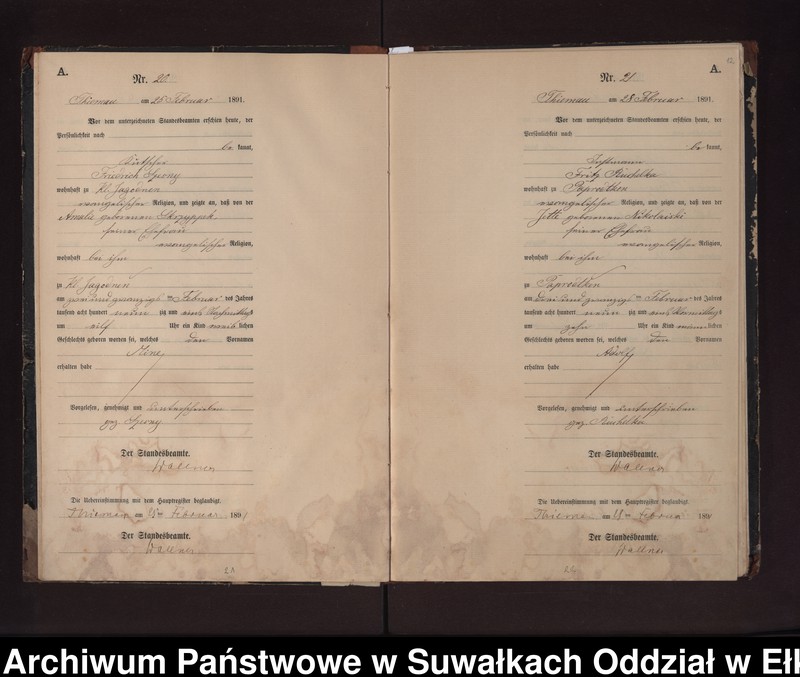 A.
Nr. 20
am 28 Februar 1891.
Vor dem unterzeichneten Standesbeamten erschien heute, der
Persönlichkeit nach
be kannt,
Friedrich
wohnhaft zu Kl. Jagodnen
evangelischer Religion, und zeigte an, daß von der
Amalie geborenen Skrzyppek
seiner Ehefrau
evangelischer Religion,
wohnhaft bei ihm
zu Kl. Jagodnen
am zwei und zwanzigst en Februar des Jahres
tausend acht hundert neun zig und eins Nachmittags
um eilf Uhr ein Kind weib lichen
Geschlechts geboren worden sei, welches den Vornamen
Mine
erhalten habe
Vorgelesen, genehmigt und unterschrieben
gez.
Der Standesbeamte.
Wallner
Die Uebereinstimmung mit dem Hauptregister beglaubigt.
am 28 ten Februar 1891
Der Standesbeamte.
Wallner
A.
12
Nr. 21
am 28 Februar 1891.
Vor dem unterzeichneten Standesbeamten erschien heute, der
Persönlichkeit nach
be kannt,
Fritz
wohnhaft zu Paprodtken
evangelischer Religion, und zeigte an, daß von der
Jette geborenen Nikolaiski
seiner Ehefrau
evangelischer Religion,
wohnhaft bei ihm
zu Paprodtken
am drei und zwanzigst en Februar des Jahres
tausend acht hundert neun zig und eins Vormittags
um zehn Uhr ein Kind männ lichen
Geschlechts geboren worden sei, welches den Vornamen
Adolf
erhalten habe
Vorgelesen, genehmigt und unterschrieben
gez.
Der Standesbeamte.
Wallner
Die Uebereinstimmung mit dem Hauptregister beglaubigt.
am 28 ten Februar 1891
Der Standesbeamte.
Wallner
Archiwum Państwowe w Suwałkach Oddział w Ełk